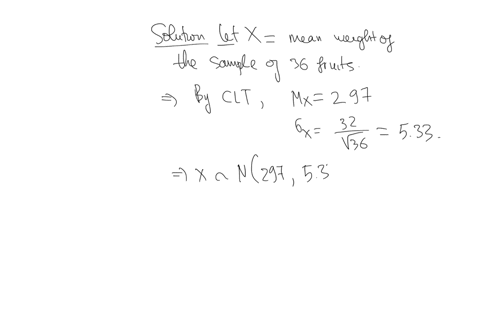 Solution Let X = mean weight of
the sample of 36 fruits.
⇒ By CLT, Mx = 297
σx = 32/√36 = 5.33.
⇒ X ~ N(297, 5.3